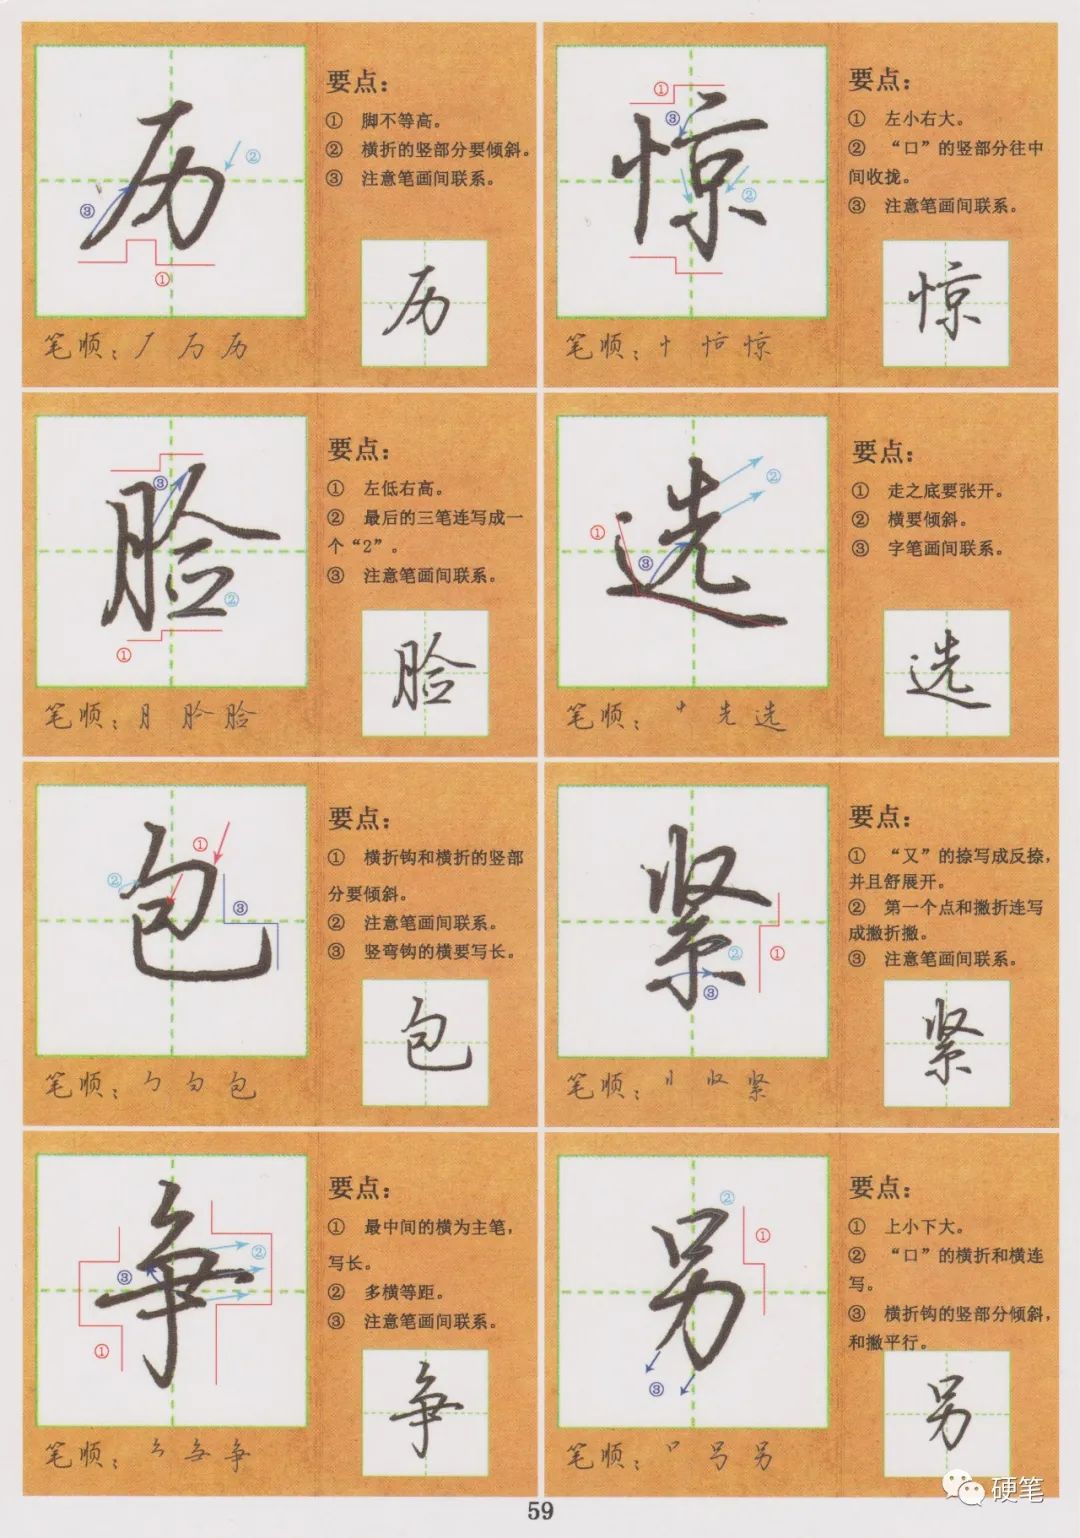 历
要点：
① 脚不等高。
② 横折的竖部分要倾斜。
③ 注意笔画间联系。
②
③
①
历
笔顺：丆 历 历
惊
要点：
① 左小右大。
② “口”的竖部分往中
间收拢。
③ 注意笔画间联系。
①
③
②
惊
笔顺：忄 惊
脸
要点：
① 左低右高。
② 最后的三笔连写成一
个“2”。
③ 注意笔画间联系。
③
②
①
脸
笔顺：月 脸 脸
选
要点：
① 走之底要张开。
② 横要倾斜。
③ 字笔画间联系。
②
①
③
选
笔顺：先 选
包
要点：
① 横折钩和横折的竖部
分要倾斜。
② 注意笔画间联系。
③ 竖弯钩的横要写长。
①
②
③
包
笔顺：勹 包
紧
要点：
① “又”的捺写成反捺，
并且舒展开。
② 第一个点和撇折连写
成撇折撇。
③ 注意笔画间联系。
②
①
③
紧
笔顺：〢 収 紧
争
要点：
① 最中间的横为主笔，
写长。
② 多横等距。
③ 注意笔画间联系。
②
③
①
争
笔顺：争
另
要点：
① 上小下大。
② “口”的横折和横连
写。
③ 横折钩的竖部分倾斜，
和撇平行。
②
①
③
另
笔顺：另
硬笔
59